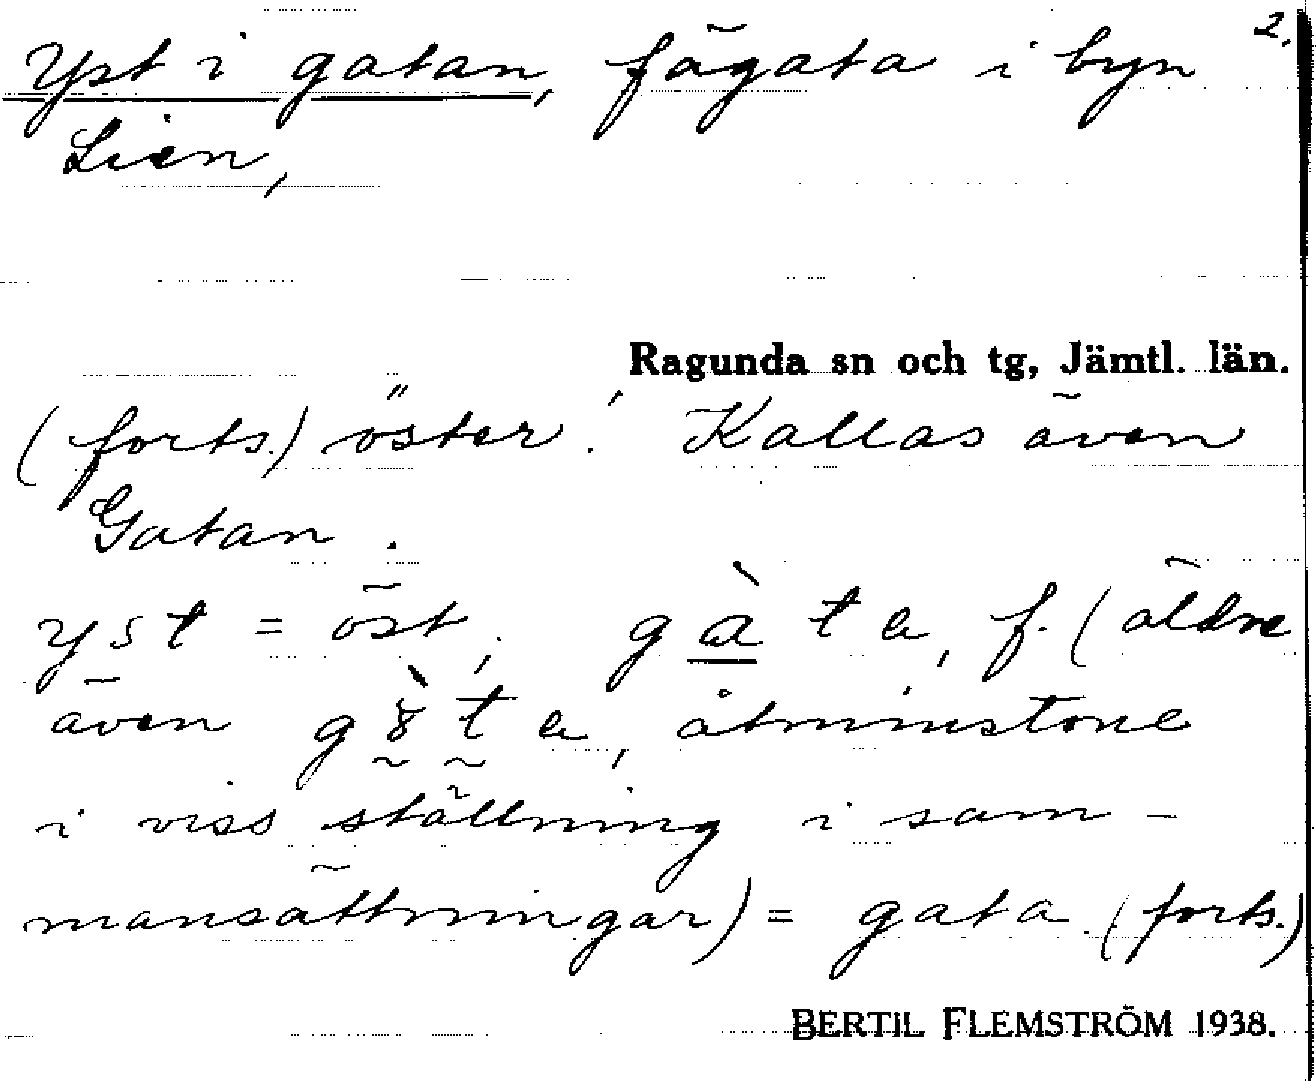 2.
Yst i gatan, fägata i byn
Lien,
Ragunda sn och tg, Jämtl. län.
(forts.) öster. Kallas även
Gatan.
yst = öst, g à t a, f. (äldre
även g t a, åtminstone
i viss ställning i sam-
mansättningar) = gata (forts.)
BERTIL FLEMSTRÖM 1938.